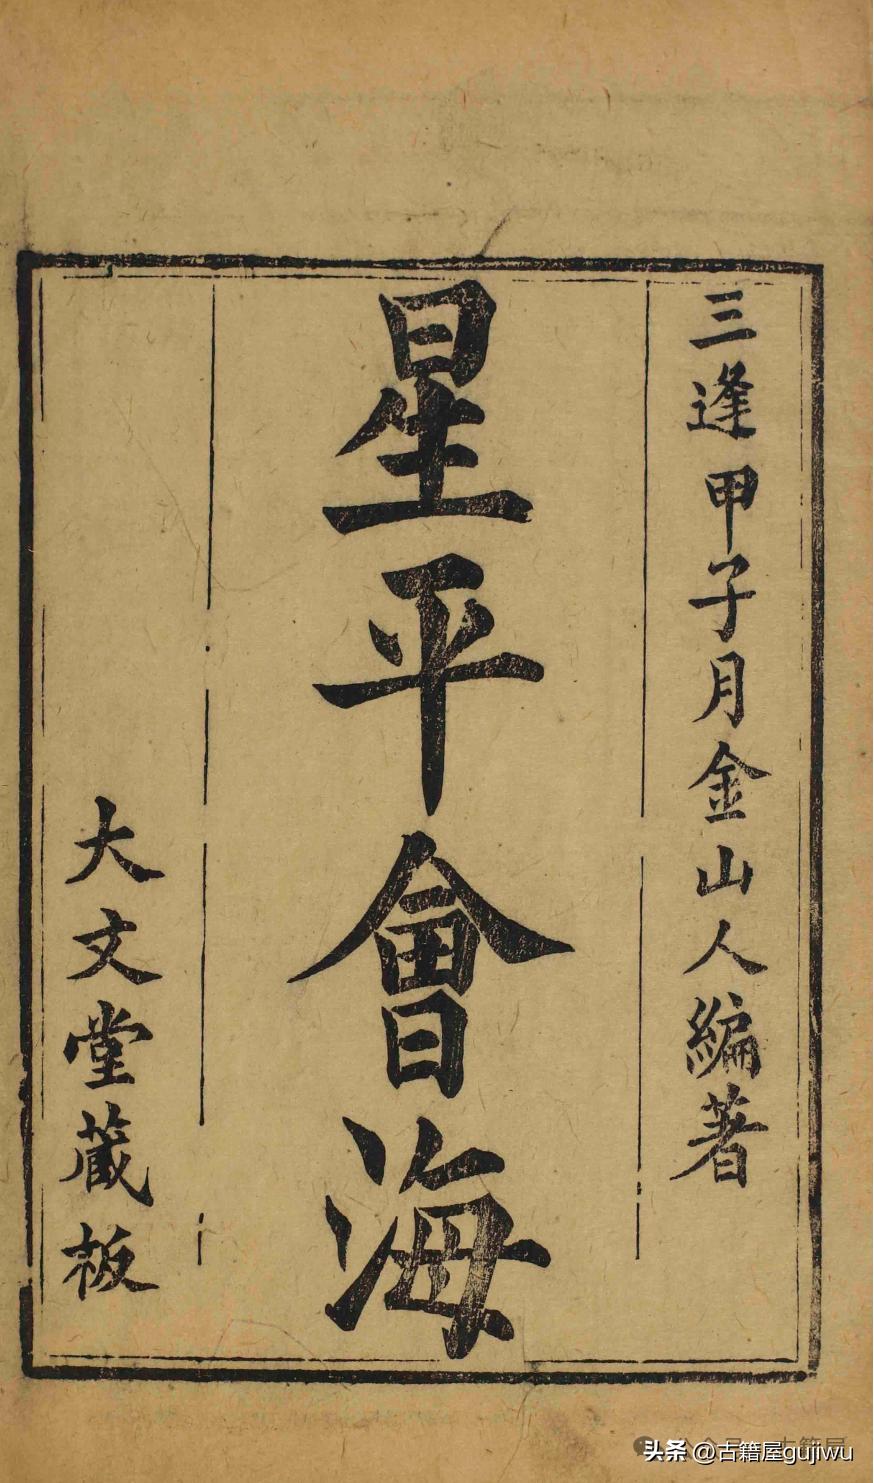 三逢甲子月金山人編著
星平會海
大文堂藏板
头条 @古籍屋gujiwu